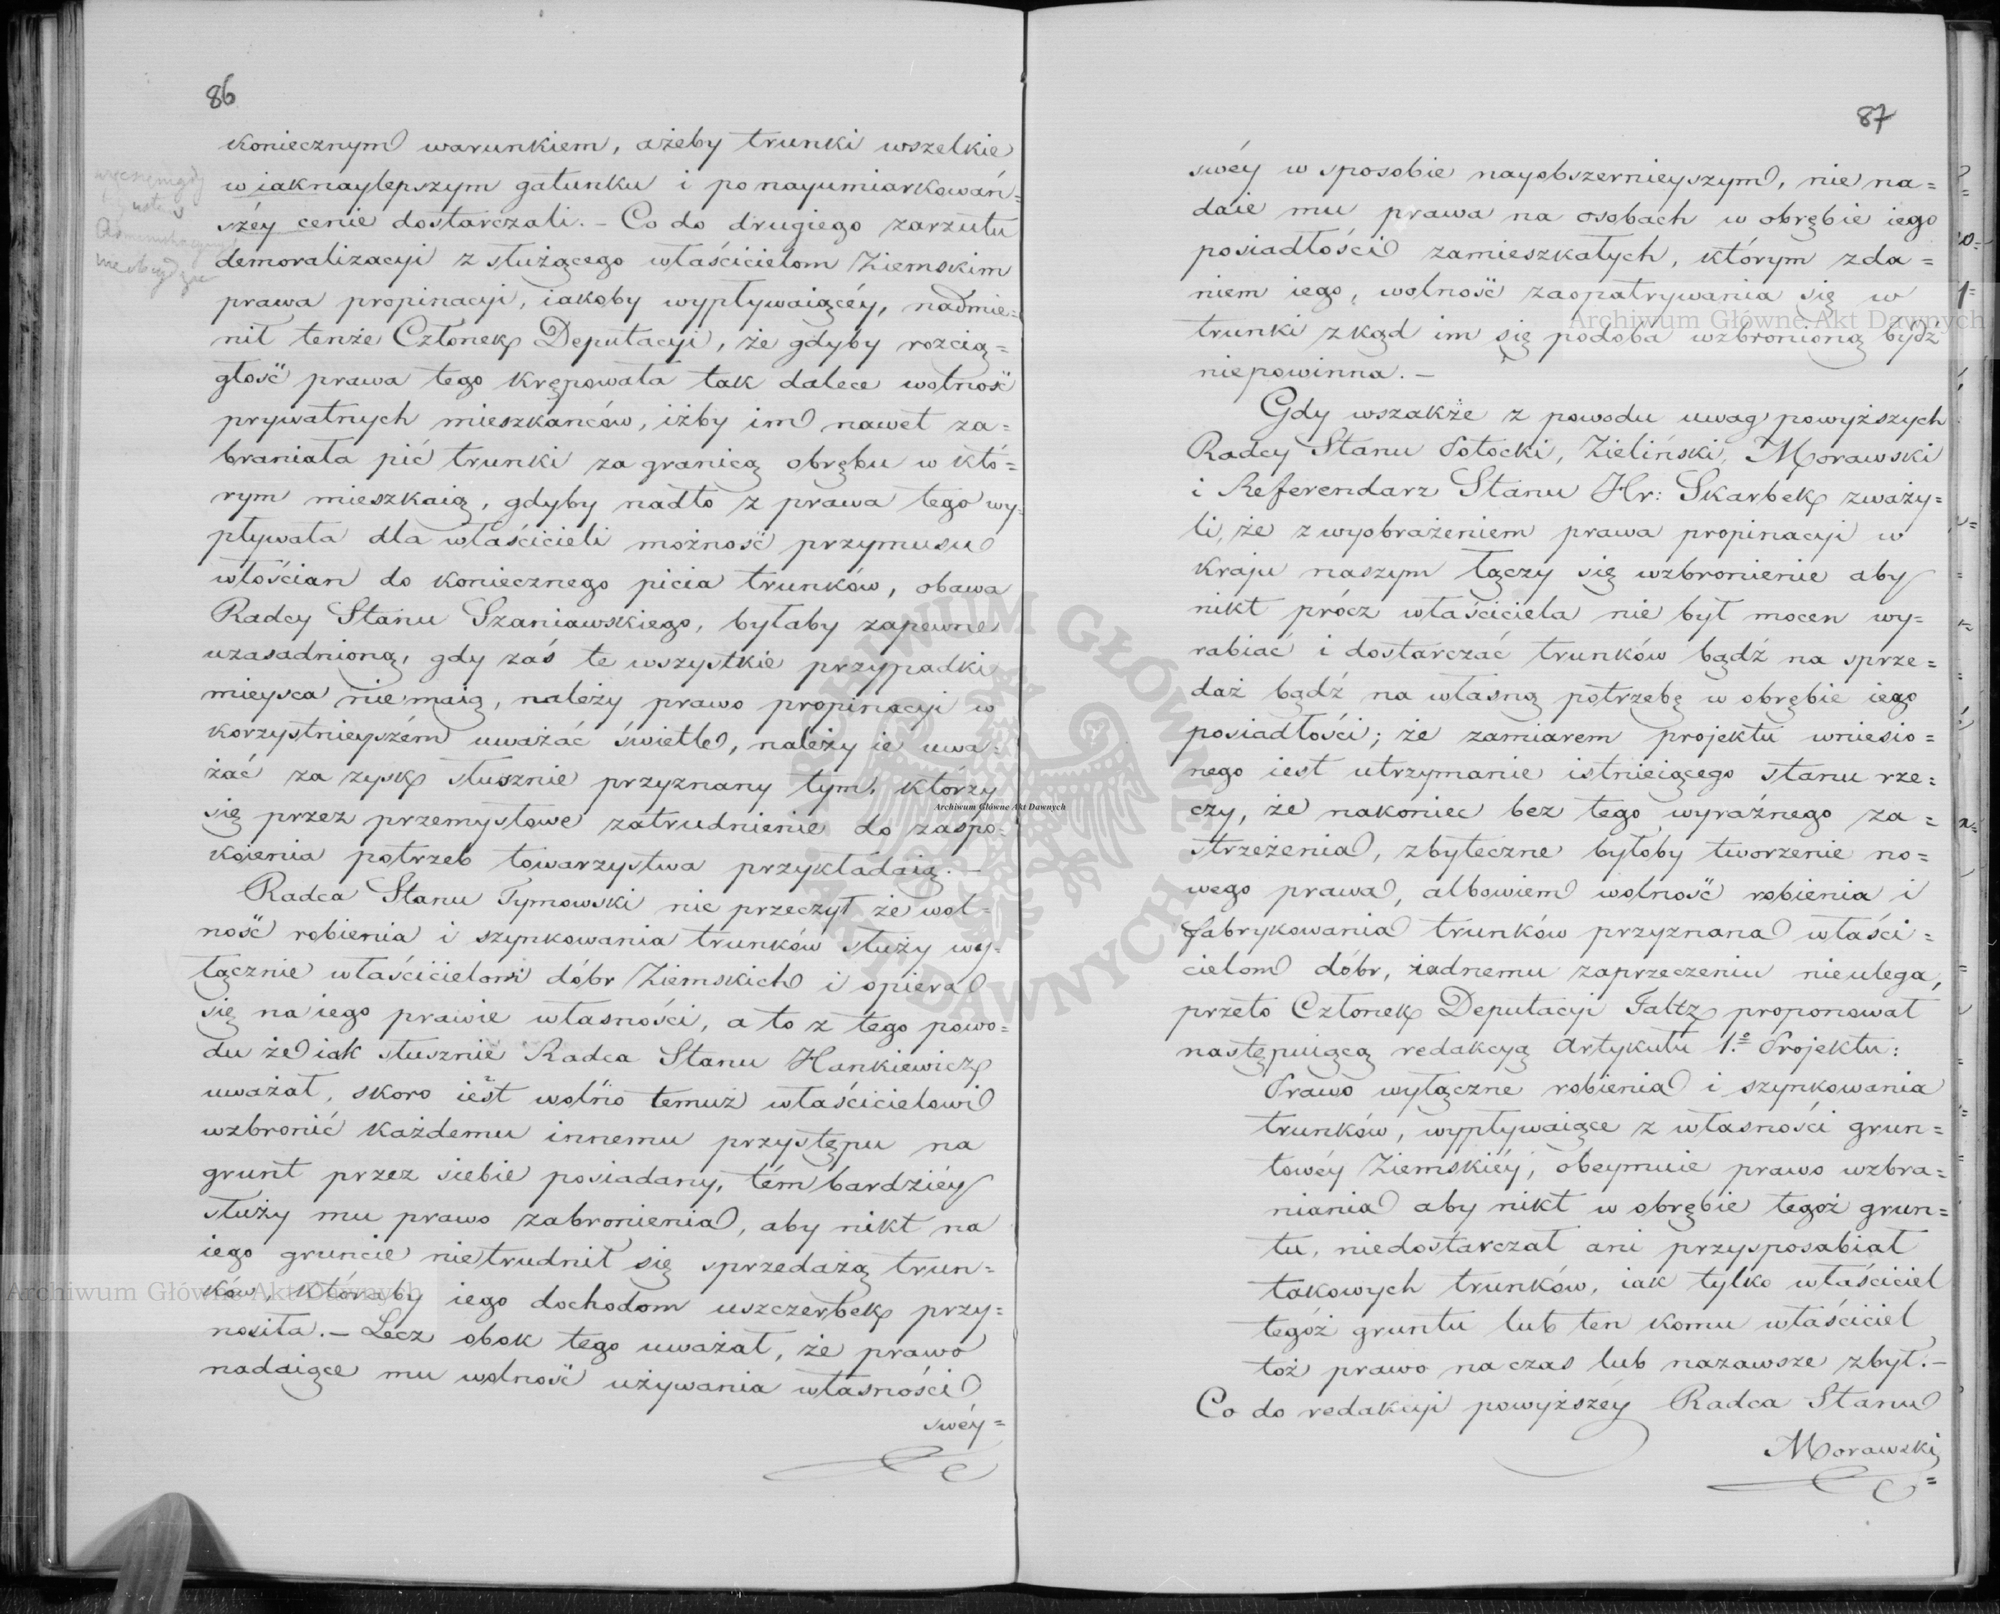 86
koniecznym warunkiem, ażeby trunki wszelkie
w iaknaylepszym gatunku i po nayumiarkowań=
széy cenie dostarczali. – Co do drugiego zarzutu
demoralizacyi z służącego właścicielom Ziemskim
prawa propinacyi, iakoby wypływaiącéy, nadmie=
nił tenże Członek Deputacyi, że gdyby rozcią=
głość prawa tego krępowała tak dalece wolność
prywatnych mieszkańców, iżby im nawet za=
braniała pić trunki za granicą obrębu w któ=
rym mieszkaią, gdyby nadto z prawa tego wy=
pływała dla właścicieli możność przymusu
włościan do koniecznego picia trunków, obawa
Radcy Stanu Szaniawskiego, byłaby zapewne
uzasadnioną, gdy zaś te wszystkie przypadki
mieysca nie maią, należy prawo propinacyi w
korzystnieyszém uważać świetle, należy ie uwa=
żać za zysk słusznie przyznany tym, którzy
się przez przemysłowe zatrudnienie do zaspo=
koienia potrzeb towarzystwa przykładaią. –
Radca Stanu Tymowski nie przeczył że wol=
ność robienia i szynkowania trunków służy wy=
łącznie właścicielowi dóbr Ziemskich i opiera
się na iego prawie własności, a to z tego powo=
du że iak słusznie Radca Stanu Hankiewicz
uważał, skoro iest wolno temuż właścicielowi
wzbronić każdemu innemu przystępu na
grunt przez siebie posiadany, tém bardziéy
służy mu prawo zabronienia, aby nikt na
iego gruncie nietrudnił się sprzedażą trun=
ków, któraby iego dochodom uszczerbek przy=
nosiła. – Lecz obok tego uważał, że prawo
nadaiące mu wolność używania własności
swéy=
87
swéy w sposobie nayobszernieyszym, nie na=
daie mu prawa na osobach w obrębie iego
posiadłości zamieszkałych, którym zda=
niem iego, wolność zaopatrywania się w
trunki zkąd im się podoba wzbronioną bydź
niepowinna. –
Gdy wszakże z powodu uwag powyższych
Radcy Stanu Potocki, Zieliński, Morawski
i Referendarz Stanu Hr: Skarbek zważy=
li, że z wyobrażeniem prawa propinacyi w
kraju naszym łączy się wzbronienie aby
nikt prócz właściciela nie był mocen wy=
rabiać i dostarczać trunków bądź na sprze=
daż bądź na własną potrzebę w obrębie iego
posiadłości; że zamiarem projektu wniesio=
nego iest utrzymanie istnieiącego stanu rze=
czy, że nakoniec bez tego wyraźnego za=
strzeżenia, zbyteczne byłoby tworzenie no=
wego prawa, albowiem wolność robienia i
fabrykowania trunków przyznana właści=
cielom dóbr, żadnemu zaprzeczeniu nieulega,
przeto Członek Deputacyi Faltz proponował
następuiącą redakcyą Artykułu 1.º Projektu:
Prawo wyłączne robienia i szynkowania
trunków, wypływaiące z własności grun=
towéy Ziemskiéy, obeymuie prawo wzbra=
niania aby nikt w obrębie tegoż grun=
tu, niedostarczał ani przysposabiał
takowych trunków, iak tylko właściciel
tegóż gruntu lub ten komu właściciel
toż prawo na czas lub nazawsze zbył. –
Co do redakcyi powyższéy Radca Stanu
Morawski
=
Archiwum Główne Akt Dawnych
Archiwum Główne Akt Dawnych
Archiwum Główne Akt Dawnych
ARCHIWUM GŁÓWNE AKT DAWNYCH